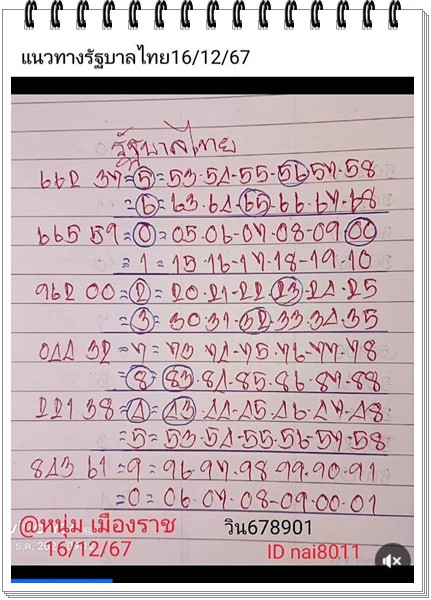 แนวทางรัฐบาลไทย16/12/67
รัฐบาลไทย
662 37=5=53.54.55.56.57.58
=6=63.64.65.66.67.68
665 59=0=05.06.07.08-09.00
=1=15.16-17.18-19.10
962 00=2=20.21-22.23.24.25
=3=30.31.32.33.34.35
044 32=7=73.74.75.76.77.78
=8=83.84.85.86.87.88
221 38=4=43.44.45.46.47.48
=5=53.54.55.56.57.58
843 61=9=96.97.98.99.90.91
=0=06.07.08-09.00.01
@หนุ่ม เมืองราช
วิน678901
16/12/67
ID nai8011